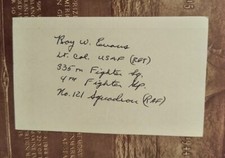 Roy W. Evans
Lt. Col. USAF (RET)
335th Fighter Sq.
4th Fighter Gp.
No. 121 Squadron (RAF)